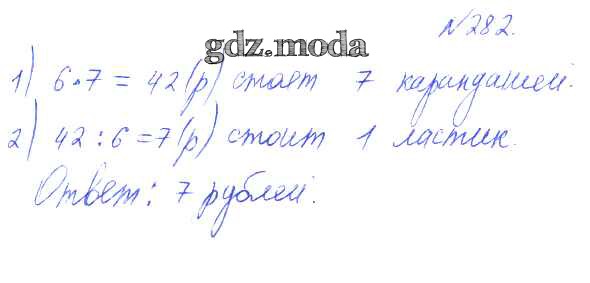 №282.
gdz.moda
1) 6·7 = 42 (р) стоят 7 карандашей.
2) 42 : 6 = 7 (р) стоит 1 ластик.
Ответ: 7 рублей.